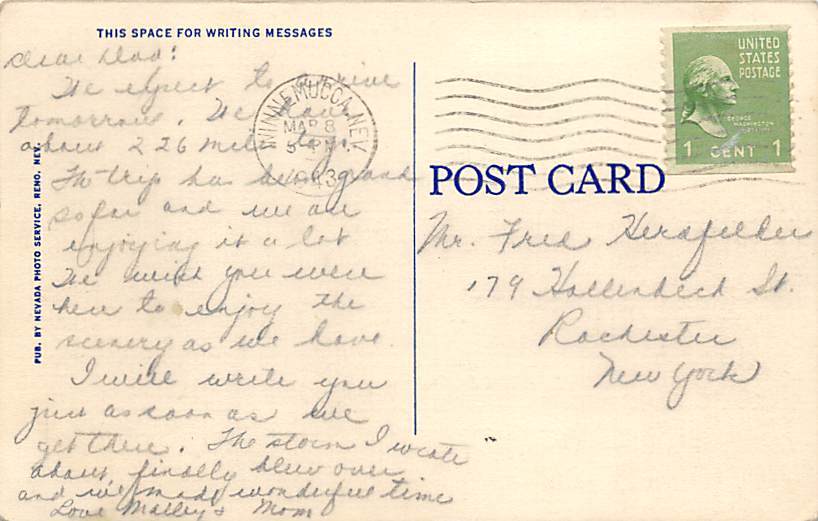 THIS SPACE FOR WRITING MESSAGES
Dear Dad:
We expect to arrive
tomorrow. We have
about 226 miles to go.
The trip has been grand
so far and we are
enjoying it a lot
We wish you were
here to enjoy the
scenery as we have.
I will write you
just as soon as we
get there. The storm I wrote
about, finally blew over
and we made wonderful time
Love Malley & Mom
PUB. BY NEVADA PHOTO SERVICE, RENO, NEV.
WINNEMUCCA, NEV.
MAR 8
5 PM
1943
UNITED
STATES
POSTAGE
GEORGE
WASHINGTON
1 CENT 1
POST CARD
Mr. Fred Hersfelder
179 Hollenbeck St.
Rochester
New York